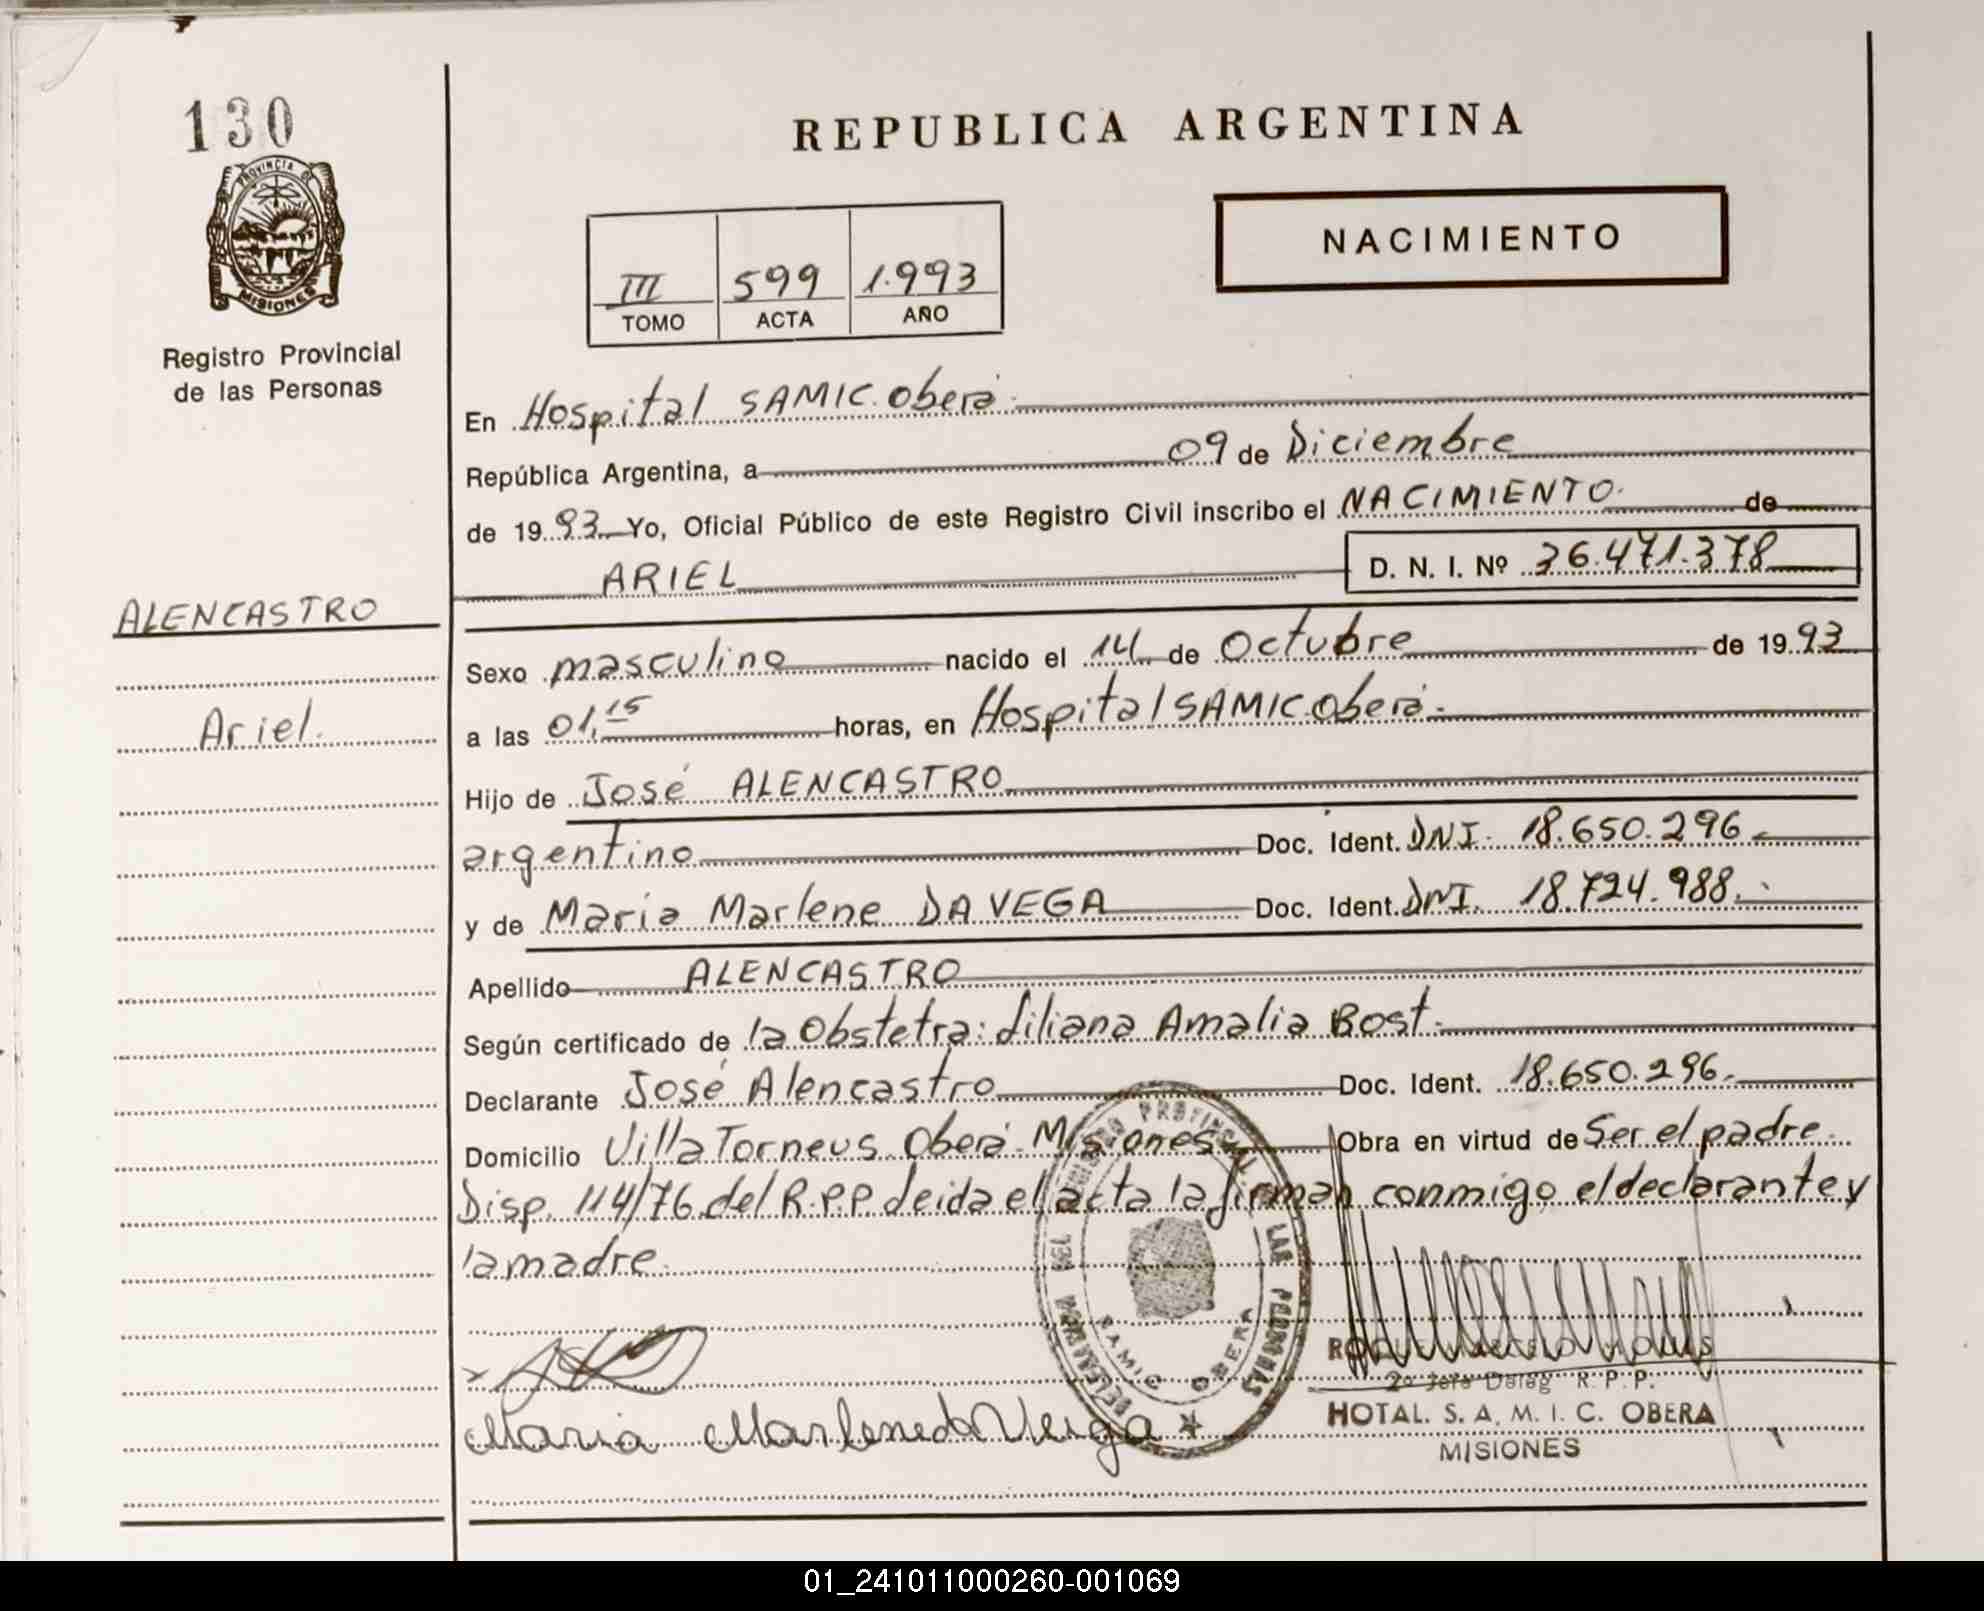 130
PROVINCIA DE
MISIONES
Registro Provincial
de las Personas
REPUBLICA ARGENTINA
NACIMIENTO
III 599 1.993
TOMO ACTA AÑO
En Hospital SAMIC. Oberá.
República Argentina, a 09 de Diciembre
de 1993 Yo, Oficial Público de este Registro Civil inscribo el NACIMIENTO. de
ARIEL D. N. I. Nº 36.471.378
ALENCASTRO
Ariel.
Sexo masculino nacido el 14 de Octubre de 1993
a las 01,15 horas, en Hospital SAMIC. Oberá.
Hijo de José ALENCASTRO
argentino Doc. Ident. DNI. 18.650.296
y de Maria Marlene DA VEGA Doc. Ident. DNI. 18.724.988.
Apellido ALENCASTRO
Según certificado de la Obstetra: Liliana Amalia Bost.
Declarante José Alencastro Doc. Ident. 18.650.296.
Domicilio Villa Torneus Oberá Misiones Obra en virtud de Ser el padre.
Disp. 114/76 del R.P.P. leida el acta la firman conmigo el declarante y
la madre.
Maria Marlene da Veiga
SAMIC OBERA
LAS PERSONAS
2º Jefe Deleg R. P. P.
HOTAL. S. A. M. I. C. OBERA
MISIONES
01_241011000260-001069